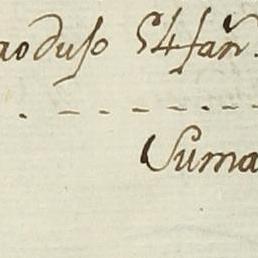 aoduſo 54 fañ.
Suma